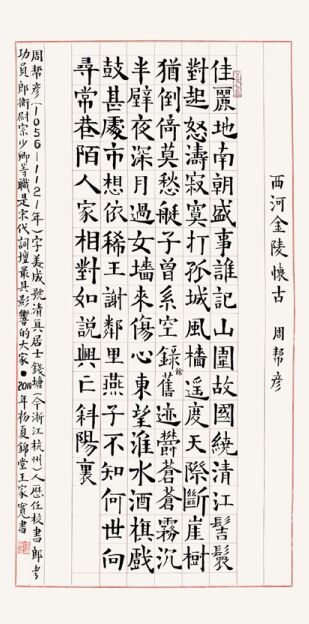 西河金陵懷古 周帮彥
佳麗地南朝盛事誰記山圍故國繞清江髻鬟
對起怒濤寂寞打孤城風檣遥度天際斷崖樹
猶倒倚莫愁艇子曾系空錄餘舊迹鬱蒼蒼霧沉
半壁夜深月過女墻來傷心東望淮水酒旗戲
鼓甚處市想依稀王謝鄰里燕子不知何世向
尋常巷陌人家相對如説興亡斜陽裏
周帮彥(1056—1121年)字美成號清真居士錢塘(今浙江杭州)人歷任校書郎考
功員郎衛尉宗少卿等職是宋代詞壇最具影響的大家●2010年初夏錦堂王家寬書